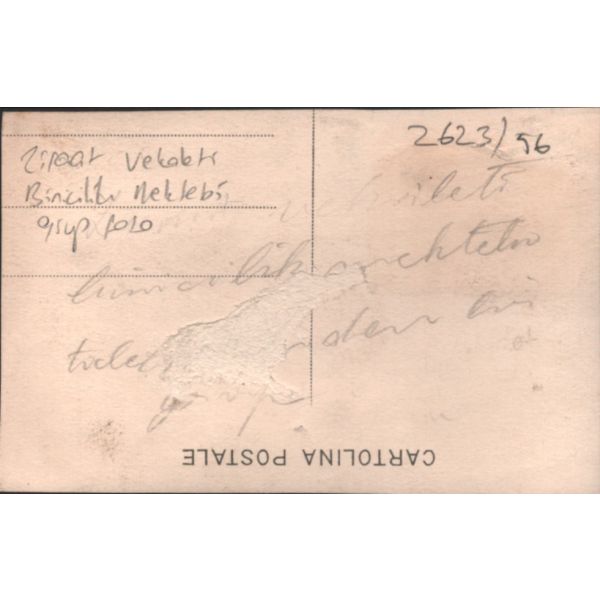 2623/56
Ziraat Vekaleti
Binicilik Mektebi
grup foto
vekaleti
binicilik mekteb
grup
CARTOLINA POSTALE